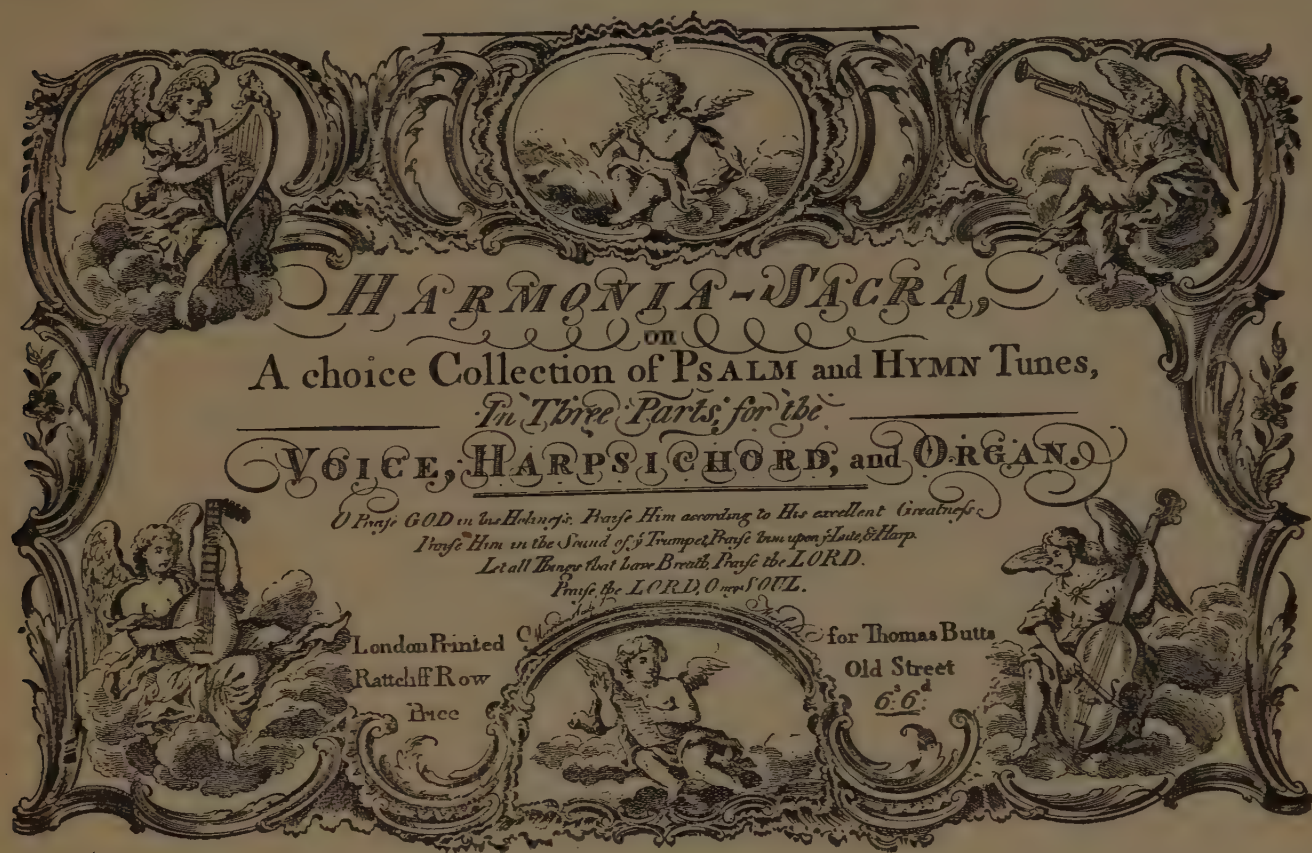 HARMONIA-SACRA,
OR
A choice Collection of PSALM and HYMN Tunes,
In Three Parts, for the
VOICE, HARPSICHORD, and ORGAN.
O Praise GOD in his Holineſs, Praiſe Him according to His excellent Greatneſs
Praiſe Him in the Sound of ẏ Trumpet, Praiſe him upon ẏ Lute, & Harp
Let all Things that have Breath, Praiſe the LORD.
Praiſe the LORD, O my SOUL.
London Printed for Thomas Butts
Rattcliff Row Old Street
Price 6ˢ: 6ᵈ: